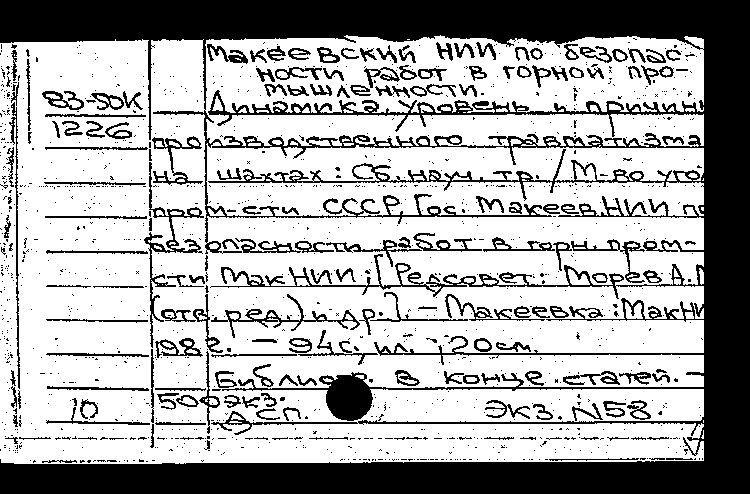 Макеевский НИИ по безопас-
ности работ в горной про-
мышленности.
83-50К
Динамика, уровень и причины
1226
производственного травматизма
на шахтах : Сб. науч. тр. / М-во угол
пром-сти СССР, Гос. Макеев. НИИ по
безопасности работ в горн. пром-
сти МакНИИ ; [Редсовет: Морев А.М
(отв. ред.) и др.]. - Макеевка : МакНИ
1982. - 94 с., ил. ; 20 см.
Библиогр. в конце статей. -
500 экз.
10
ДСП. Экз. N58.